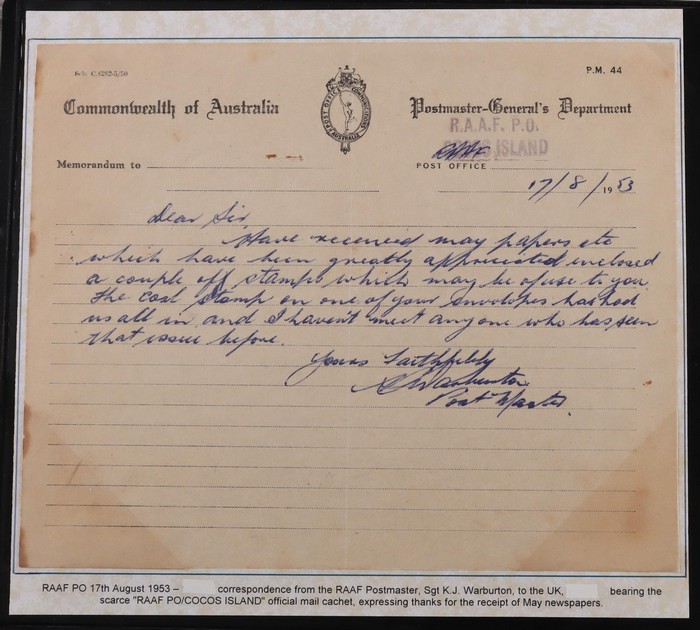 Sch. C.6282-5/50
P.M. 44
Commonwealth of Australia
Postmaster-General's Department
R.A.A.F. P.O.
COCOS ISLAND
Memorandum to
POST OFFICE
17/8/1953
Dear Sir
Have received may papers etc
which have been greatly appreciated inclosed
a couple off stamps which may be of use to you.
The coal stamp on one of your envelopes has had
us all in and I haven't meet anyone who has seen
that issue before.
Yours Faithfully
Warburton
Post Master.
RAAF PO 17th August 1953 – correspondence from the RAAF Postmaster, Sgt K.J. Warburton, to the UK, bearing the
scarce "RAAF PO/COCOS ISLAND" official mail cachet, expressing thanks for the receipt of May newspapers.